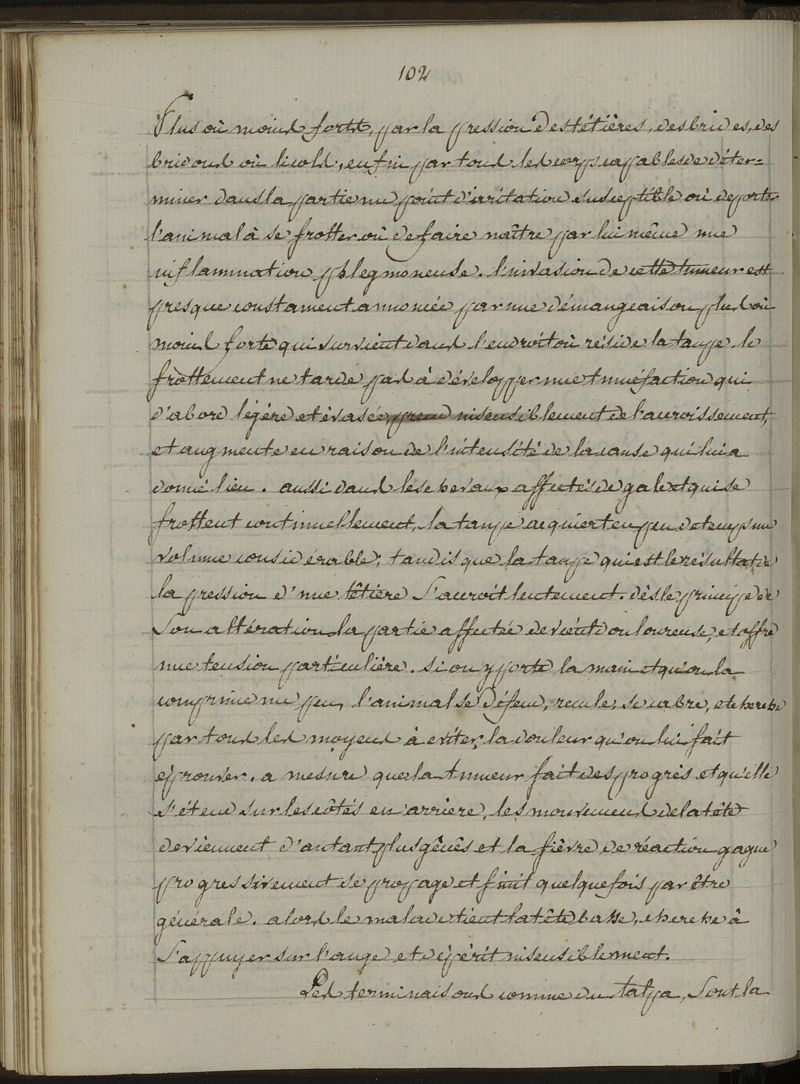 102
Plus où moins forts, par la pression des têtières, des brides, des
bridons où licols, enfin par tous les corps capables de déter=
miner dans la partie un point d'irritation susceptible où de porter
l'animal à se frotter où de faire naître par lui même une
inflammation phlegmoneuse. l'invasion de cette tumeur est
presque constament annoncée par une démangeaison plus où
moins forte qui survient dans l'endroit où réside la taupe. le
frottement ne tarde pas à développer une tuméfaction qui
d'abord légère et évasée, prend insensiblement de l'accroissement,
et augmente en raison de l'intensité de la cause qui lui a
donné lieu. aussi dans les chevaux affectés de gale et qui se
frottent continuellement, la taupe acquiert en peu de temps un
volume considérable; tandis que la taupe qui est le résultat de
la pression d'une têtière s'accroit lentement. dès le principe de
son altération la partie affectée devient douloureuse, et offre
une tension particulière. si on y porte la main et qu'on la
comprime un peu, l'animal se défend, recule, se cabre, et cherche
par tous les moyens à eviter la douleur qu'on lui fait
éprouver. a mesure que la tumeur fait des progrès et qu'elle
s'étend sur les côtés en arriere, les mouvemens de la tête
deviennent d'autant plus gênés et la fièvre de réaction gagne
progressivement se propage et finit quelquefois par être
générale. alors le malade tient la tête basse, cherche à
s'appuyer sur l'auge et dépérit insensiblement.
Les terminaisons comme du talpa, sont la